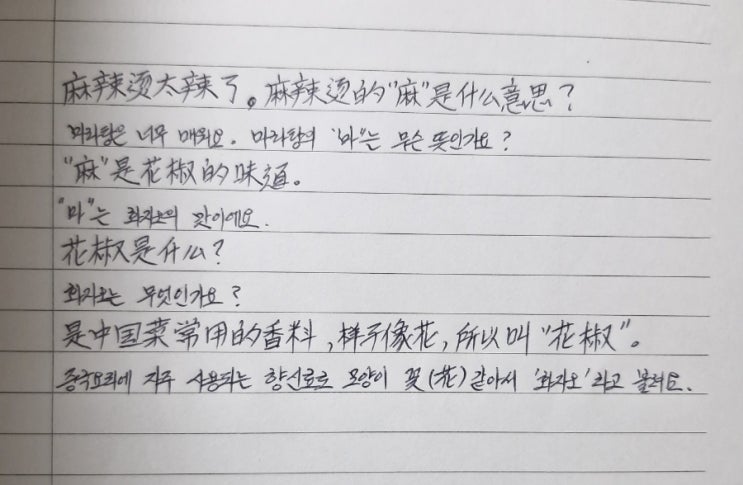 麻辣烫太辣了。麻辣烫的"麻"是什么意思？
마라탕은 너무 매워요. 마라탕의 '마'는 무슨 뜻인가요?
"麻"是花椒的味道。
"마"는 화자오의 맛이에요.
花椒是什么？
화자오는 무엇인가요?
是中国菜常用的香料,样子像花,所以叫"花椒"。
중국요리에 자주 사용되는 향신료로 모양이 꽃(花)같아서 '화자오'라고 불려요.